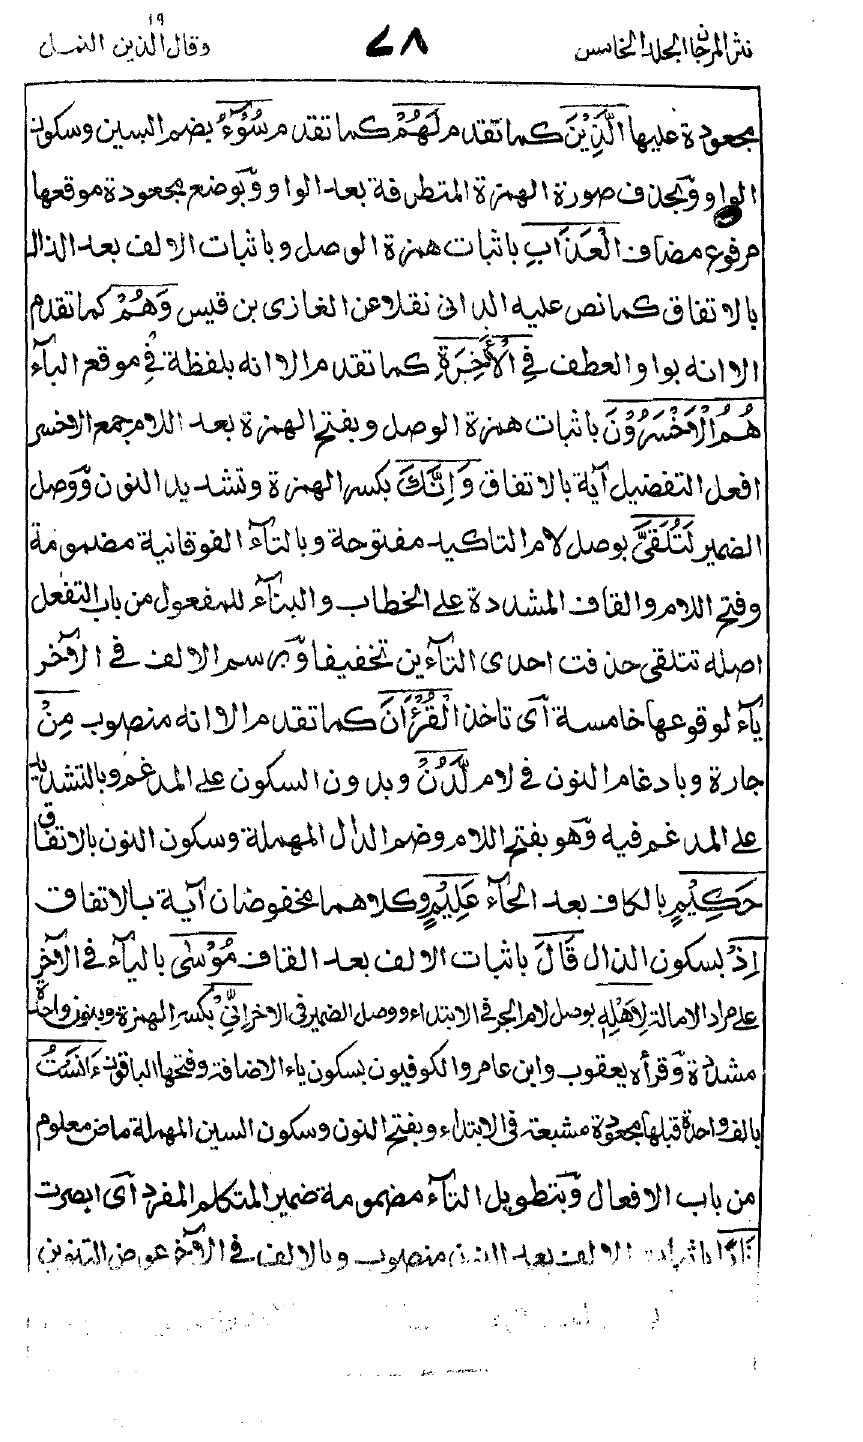 نثر المرجان الجلد الخامس ٧٨ وقال الذين ١٩ النمل
مجعودة عليها الَّذِيْنَ كما تقدم لَهُمْ كما تقدم سُوْٓءُ بضم السين وسكون
الواو وبحذف صورة الهمزة المتطرفة بعد الواو وبوضع مجعودة موقعها
مرفوع مضاف الْعَذَابِ باثبات همزة الوصل وباثبات الالف بعد الذال
بالاتفاق كما نص عليه الدانى نقلا عن الغازى بن قيس وَهُمْ كما تقدم
الا انه بواو العطف فِي الْأٰخِرَةِ كما تقدم الا انه بلفظة فِي موقع البآء
هُمُ الْاَخْسَرُوْنَ باثبات همزة الوصل وبفتح الهمزة بعد اللام جمع الاخسر
افعل التفضيل آية بالاتفاق وَاِنَّكَ بكسر الهمزة وتشديد النون ووصل
الضمير لَتُلَقَّى بوصل لام التاكيد مفتوحة وبالتآء الفوقانية مضمومة
وفتح اللام والقاف المشددة على الخطاب والبنآء للمفعول من باب التفعل
اصله تتلقى حذفت احدى التآءين تخفيفا وبرسم الالف فى الآخر
يآء لوقوعها خامسة آى تاخذ الْقُرْاٰنَ كما تقدم الا انه منصوب مِنْ
جارة وبادغام النون فى لام لَّدُنْ وبدون السكون على المدغم وبالتشديد
على المدغم فيه وهو بفتح اللام وضم الدال المهملة وسكون النون بالاتفاق
حَكِيْمٍ بالكاف بعد الحآء عَلِيْمٍ وكلاهما مخفوضان آية بالاتفاق
اِذْ بسكون الذال قَالَ باثبات الالف بعد القاف مُوْسٰى باليآء فى الآخر
على مراد الامالة لِاَهْلِهٖ بوصل لام الجر فى الابتداء ووصل الضمير فى الاخر اِنِّيْ بكسر الهمزة وبنون واحدة
مشددة وقرأه يعقوب وابن عامر والكوفيون بسكون ياء الاضافة وفتحها الباقون ءَانَسْتُ
بالف واحدة قبلها مجعودة مشبعة فى الابتداء وبفتح النون وسكون السين المهملة ماض معلوم
من باب الافعال وبتطويل التآء مضمومة ضمير المتكلم المفرد آى ابصرت
نَارًا باثبات الالف بعد النون منصوب وبالالف فى الآخر عوض التنوين